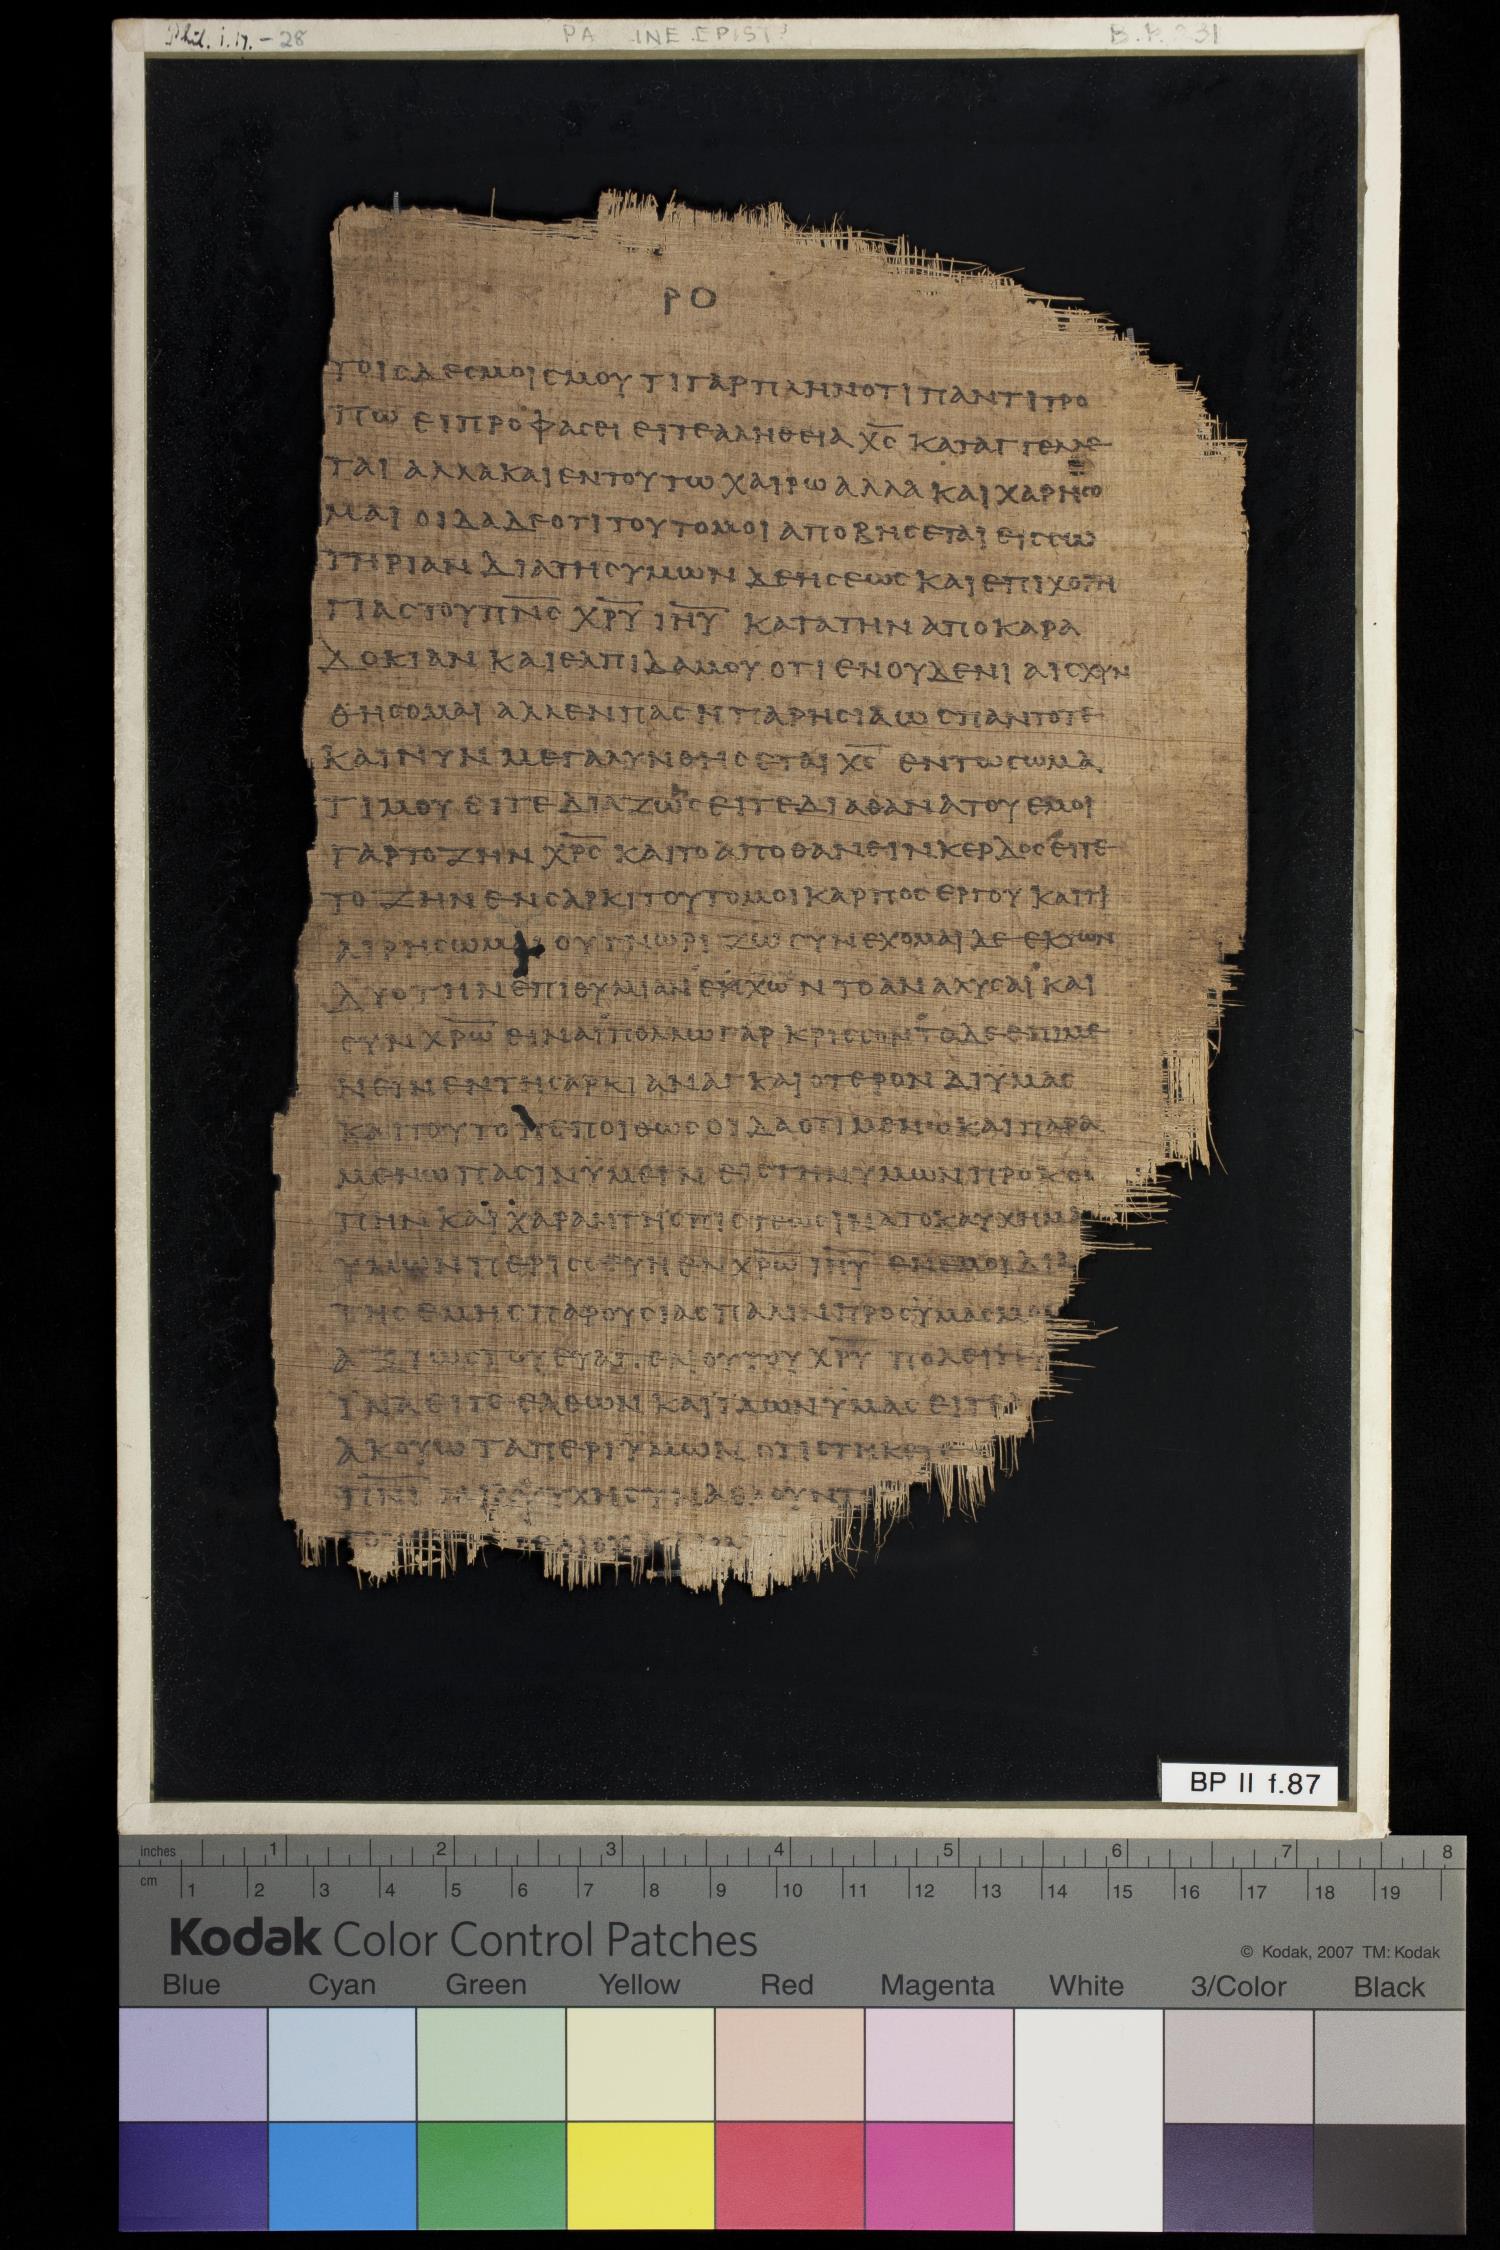 Phil. i. 17. – 28
B.P. 231
ΡΟ
ΤΟΙΣ ΔΕΣΜΟΙΣ ΜΟΥ ΤΙ ΓΑΡ ΠΛΗΝ ΟΤΙ ΠΑΝΤΙ ΤΡΟ
ΠΩ ΕΙ ΠΡΟΦΑΣΕΙ ΕΙΤΕ ΑΛΗΘΕΙΑ Χ̅Σ̅ ΚΑΤΑΓΓΕΛΛΕ
ΤΑΙ ΑΛΛΑ ΚΑΙ ΕΝ ΤΟΥΤΩ ΧΑΙΡΩ ΑΛΛΑ ΚΑΙ ΧΑΡΗΣΟ
ΜΑΙ ΟΙΔΑ ΔΕ ΟΤΙ ΤΟΥΤΟ ΜΟΙ ΑΠΟΒΗΣΕΤΑΙ ΕΙΣ ΣΩ
ΤΗΡΙΑΝ ΔΙΑ ΤΗΣ ΥΜΩΝ ΔΕΗΣΕΩΣ ΚΑΙ ΕΠΙΧΟΡΗ
ΓΙΑΣ ΤΟΥ Π̅Ν̅Σ̅ Χ̅Ρ̅Υ̅ Ι̅Η̅Υ̅ ΚΑΤΑ ΤΗΝ ΑΠΟΚΑΡΑ
ΔΟΚΙΑΝ ΚΑΙ ΕΛΠΙΔΑ ΜΟΥ ΟΤΙ ΕΝ ΟΥΔΕΝΙ ΑΙΣΧΥΝ
ΘΗΣΟΜΑΙ ΑΛΛ ΕΝ ΠΑΣΗ ΠΑΡΗΣΙΑ ΩΣ ΠΑΝΤΟΤΕ
ΚΑΙ ΝΥΝ ΜΕΓΑΛΥΝΘΗΣΕΤΑΙ Χ̅Σ̅ ΕΝ ΤΩ ΣΩΜΑ
ΤΙ ΜΟΥ ΕΙΤΕ ΔΙΑ ΖΩΗΣ ΕΙΤΕ ΔΙΑ ΘΑΝΑΤΟΥ ΕΜΟΙ
ΓΑΡ ΤΟ ΖΗΝ Χ̅Ρ̅Σ̅ ΚΑΙ ΤΟ ΑΠΟΘΑΝΕΙΝ ΚΕΡΔΟΣ ΕΠΕ
ΤΟ ΖΗΝ ΕΝ ΣΑΡΚΙ ΤΟΥΤΟ ΜΟΙ ΚΑΡΠΟΣ ΕΡΓΟΥ ΚΑΙ ΤΙ
ΑΙΡΗΣΩΜΑΙ ΟΥ ΓΝΩΡΙΖΩ ΣΥΝΕΧΟΜΑΙ ΔΕ ΕΚ ΤΩΝ
ΔΥΟ ΤΗΝ ΕΠΙΘΥΜΙΑΝ ΕΧΩΝ ΤΟ ΑΝΑΛΥΣΑΙ ΚΑΙ
ΣΥΝ Χ̅Ρ̅Ω̅ ΕΙΝΑΙ ΠΟΛΛΩ ΓΑΡ ΚΡΙΣΣΟΝ ΤΟ ΔΕ ΕΠΙΜΕ
ΝΕΙΝ ΕΝ ΤΗ ΣΑΡΚΙ ΑΝΑΓΚΑΙΟΤΕΡΟΝ ΔΙ ΥΜΑΣ
ΚΑΙ ΤΟΥΤΟ ΠΕΠΟΙΘΩΣ ΟΙΔΑ ΟΤΙ ΜΕΝΩ ΚΑΙ ΠΑΡΑ
ΜΕΝΩ ΠΑΣΙΝ ΫΜΕΙΝ ΕΙΣ ΤΗΝ ΥΜΩΝ ΠΡΟΚΟ
ΠΗΝ ΚΑΙ ΧΑΡΑΝ ΤΗΣ ΠΙΣΤΕΩΣ ΙΝΑ ΤΟ ΚΑΥΧΗΜΑ
ΥΜΩΝ ΠΕΡΙΣΣΕΥΗ ΕΝ Χ̅Ρ̅Ω̅ Ι̅Η̅Υ̅ ΕΝ ΕΜΟΙ ΔΙΑ
ΤΗΣ ΕΜΗΣ ΠΑΡΟΥΣΙΑΣ ΠΑΛΙΝ ΠΡΟΣ ΫΜΑΣ ΜΟ
ΑΞΙΩΣ ΤΟΥ ΕΥΑΓΓΕΛΙΟΥ ΤΟΥ Χ̅Ρ̅Υ̅ ΠΟΛΕΙΤΕ
ΪΝΑ ΕΙΤΕ ΕΛΘΩΝ ΚΑΙ ΪΔΩΝ ΫΜΑΣ ΕΙΤΕ
ΑΚΟΥΩ ΤΑ ΠΕΡΙ ΫΜΩΝ ΟΤΙ ΣΤΗΚΕ
Π̅Ν̅Ι̅ ΨΥΧΗ ΣΥΝΑΘΛΟΥΝΤ
BP II f.87
inches 1 2 3 4 5 6 7 8
cm 1 2 3 4 5 6 7 8 9 10 11 12 13 14 15 16 17 18 19
Kodak Color Control Patches
© Kodak, 2007 TM: Kodak
Blue Cyan Green Yellow Red Magenta White 3/Color Black